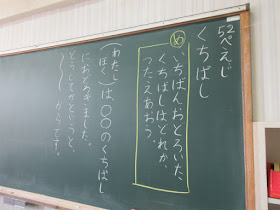 52ページ
くちばし
め
いちばんおどろいた、
くちばしはどれか、
つたえあおう。
(わたし
ぼく)は、〇〇のくちばし
におどろきました。
どうしてかというと、
〜〜〜からです。